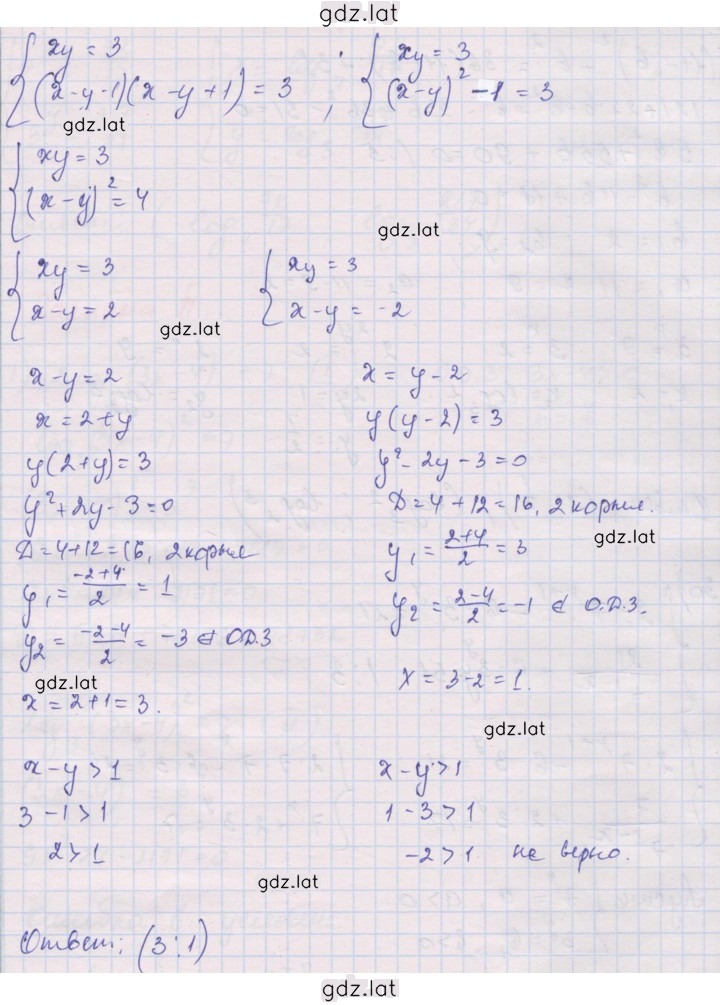 gdz.lat
{ xy = 3
(x-y-1)(x-y+1) = 3 ;
{ xy = 3
(x-y)² - 1 = 3
gdz.lat
{ xy = 3
(x-y)² = 4
gdz.lat
{ xy = 3
x-y = 2
{ xy = 3
x-y = -2
gdz.lat
x-y = 2
x = 2+y
y(2+y) = 3
y²+2y-3=0
D=4+12=16, 2 корня
y₁ = (-2+4)/2 = 1
y₂ = (-2-4)/2 = -3 ∉ О.Д.З
gdz.lat
x = 2+1=3.
x = y-2
y(y-2) = 3
y²-2y-3=0
D=4+12=16, 2 корня.
gdz.lat
y₁ = (2+4)/2 = 3
y₂ = (2-4)/2 = -1 ∉ О.Д.З.
x = 3-2=1.
gdz.lat
x-y>1
3-1>1
2>1
x-y>1
1-3>1
-2>1 не верно.
gdz.lat
Ответ: (3;1)
gdz.lat